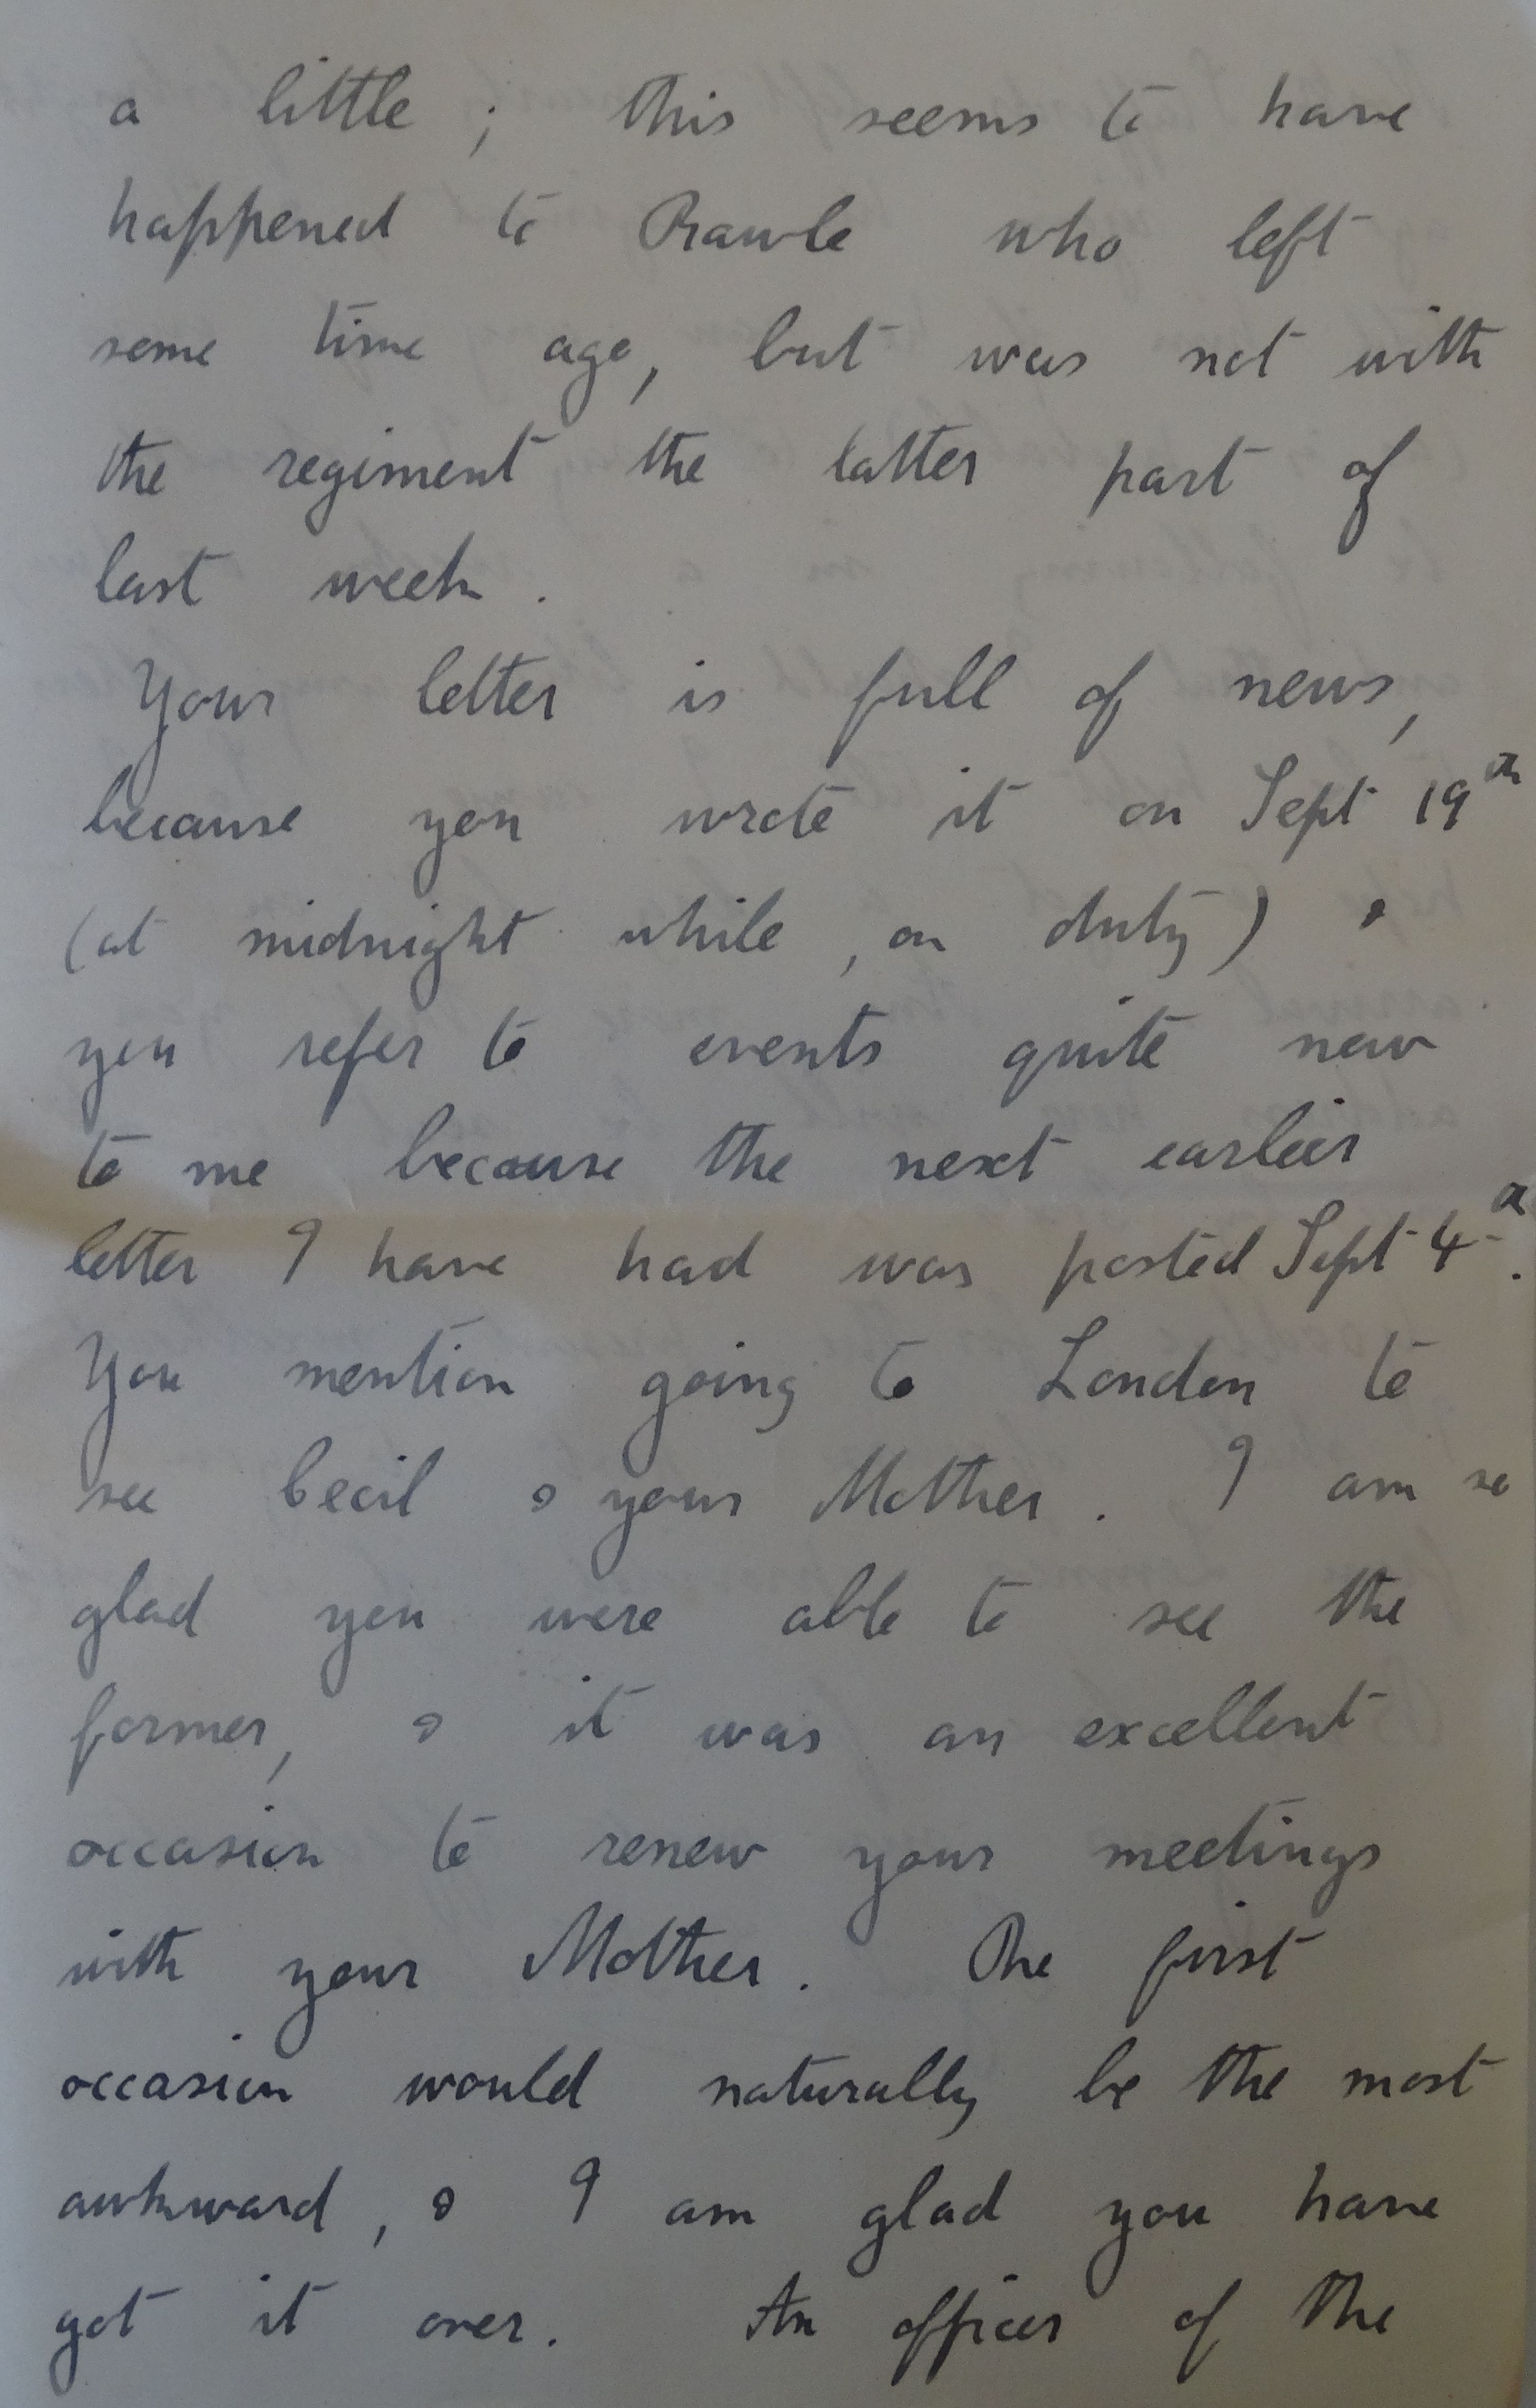 a little ; this seems to have
happened to Rawle who left
some time ago, but was not with
the regiment the latter part of
last week .
Your letter is full of news,
because you wrote it on Sept 19th
(at midnight while , on duty) &
you refer to events quite new
to me because the next earlier
letter I have had was posted Sept 4th.
You mention going to London to
see Cecil & your Mother . I am so
glad you were able to see the
former, & it was an excellent
occasion to renew your meetings
with your Mother . The first
occasion would naturally be the most
awkward, & I am glad you have
got it over. An officer of the